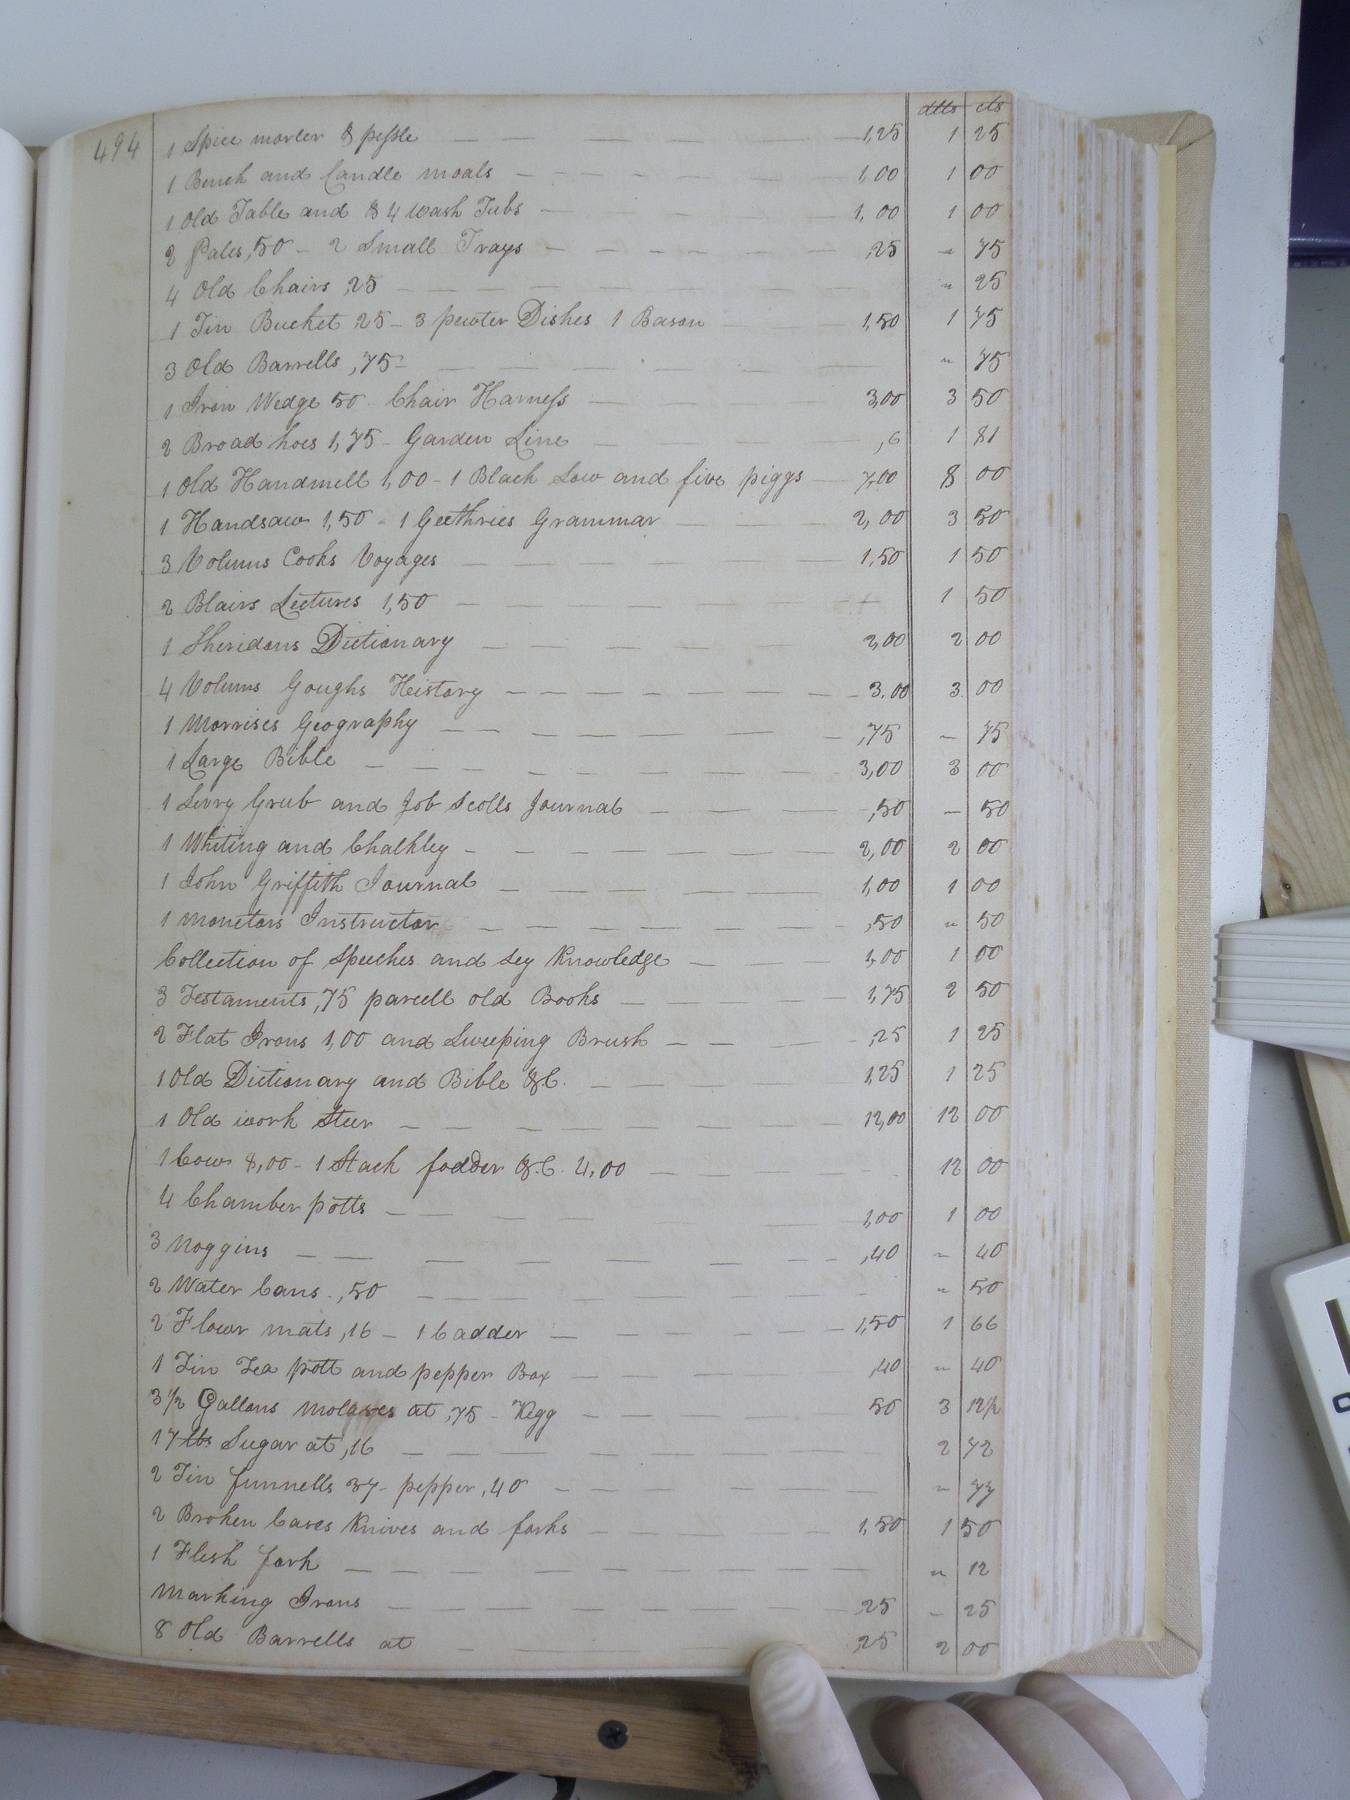 dlls cts
494 1 Spice morter & pessle 1,25 1 25
1 Bench and Candle moals 1,00 1 00
1 Old Table and & 4 wash Tubs 1,00 1 00
2 Pales ,50 - 2 Small Trays ,25 " 75
4 Old Chairs ,25 " 25
1 Tin Bucket 25 - 3 pewter Dishes 1 Bason 1,50 1 75
3 Old Barrells ,75 " 75
1 Iron Wedge 50 - Chair Harness 3,00 3 50
2 Broad hoes 1,75 - Garden Line ,6 1 81
1 Old Handmill 1,00 - 1 Black Sow and five piggs 7,00 8 00
1 Handsaw 1,50 - 1 Geethries Grammar 2,00 3 50
3 Volums Cooks Voyages 1,50 1 50
2 Blairs Lectures 1,50 1 50
1 Sheridans Dictionary 2,00 2 00
4 Volums Goughs Heistory 3.00 3 00
1 Morrises Geography ,75 " 75
1 Large Bible 3,00 3 00
1 Servy Grub and Job Scotts Journal ,50 " 50
1 Whiting and Chalkley 2,00 2 00
1 John Griffith Journal 1,00 1 00
1 Monetors Instructor ,50 " 50
Collection of Speeches and Sey Knowledge 1,00 1 00
3 Testaments ,75 parcell old Books 1,75 2 50
2 Flat Irons 1,00 and Sweeping Brush ,25 1 25
1 Old Dictionary and Bible &C. 1,25 1 25
1 Old work Steer 12,00 12 00
1 Cow 8,00 - 1 Stack fodder &.C. 4,00 12 00
4 Chamber potts 1,00 1 00
3 Noggins ,40 " 40
2 Water Cans ,50 " 50
2 Flowr mats ,16 - 1 Cadder 1,50 1 66
1 Tin Tea pott and pepper Box ,40 " 40
3 1/2 Gallons Molasses at ,75 - Kegg 50 3 12 1/2
17 lbs Sugar at ,16 2 72
2 Tin funnells 37 - pepper ,40 " 77
2 Broken Cases Knives and forks 1,50 1 50
1 Flesh fork " 12
Marking Irons 25 " 25
8 Old Barrells at ,25 2 00